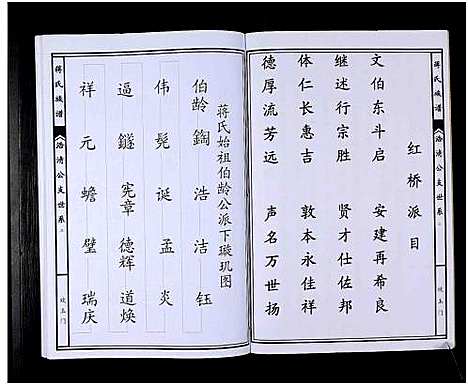 蒋氏族谱
浩清公支世系
红桥派目
文伯东斗启 安建再希良
继述行宗胜 贤才仕佐邦
体仁长惠吉 敦本永佳祥
德厚流芳远 声名万世扬
蒋氏始祖伯龄公派下璇玑图
伯龄 鋾 浩 洁 钰
伟 髡 诞 孟 炎
逼 鐩 宪章 德辉 道焕
祥 元 蟾 璧 瑞庆
蒋氏族谱
浩清公支世系
玉门